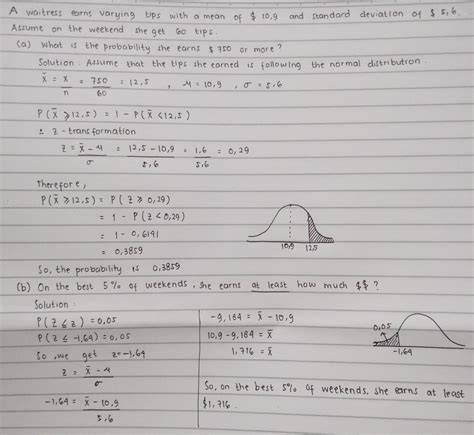 A waitress earns varying tips with a mean of $ 10,9 and standard deviation of $ 5,6.
Assume on the weekend she get 60 tips.
(a) What is the probability she earns $ 750 or more?
Solution: Assume that the tips she earned is following the normal distribution.
x̄ = x/n = 750/60 = 12,5 , μ = 10,9 , σ = 5,6
P(x̄ ≥ 12,5) = 1 - P(x̄ < 12,5)
± z-transformation
z = x̄ - μ / σ = 12,5 - 10,9 / 5,6 = 1,6 / 5,6 = 0,29
Therefore,
P(x̄ ≥ 12,5) = P(z ≥ 0,29)
= 1 - P(z < 0,29)
= 1 - 0,6141
= 0,3859
10,9 12,5
So, the probability is 0,3859
(b) On the best 5% of weekends, she earns at least how much $$ ?
Solution:
P(z ≤ z) = 0,05
P(z ≤ -1,64) = 0,05
So, we get z = -1,64
z = x̄ - μ / σ
-1,64 = x̄ - 10,9 / 5,6
-9,184 = x̄ - 10,9
10,9 - 9,184 = x̄
1,716 = x̄
0,05
-1,64
So, on the best 5% of weekends, she earns at least
$1,716.